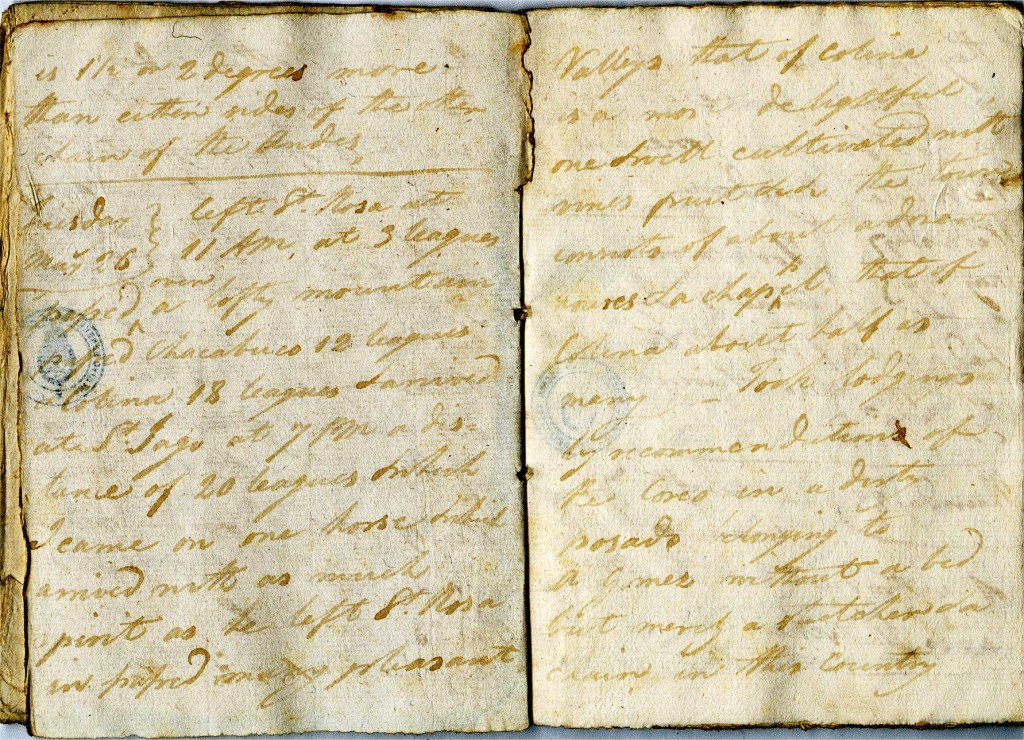 is 1½ or 2 degrees more
than either sides of the other
chain of the Andes
Tuesday } left St. Rosa at
Mar 26 } 11 AM, at 3 leagues
over
passed a lofty mountain
passed Chacabuco 12 leagues
Colina 18 leagues & arrived
at St. Jago at 7 PM a dis-
tance of 20 leagues & which
I came on one horse which
arrived with as much
spirit as he left St. Rosa
in passed many pleasant
Valleys that of Colina
is a mos delightful
one & well cultivated with
vines fruit the town
consists of about a dozen
houses & a chapel that of
Colina about half as
many – Took lodgings
by recommendations of
the in a dirty
posado belonging to
without a bed
but merely a & a
chair, in this Country